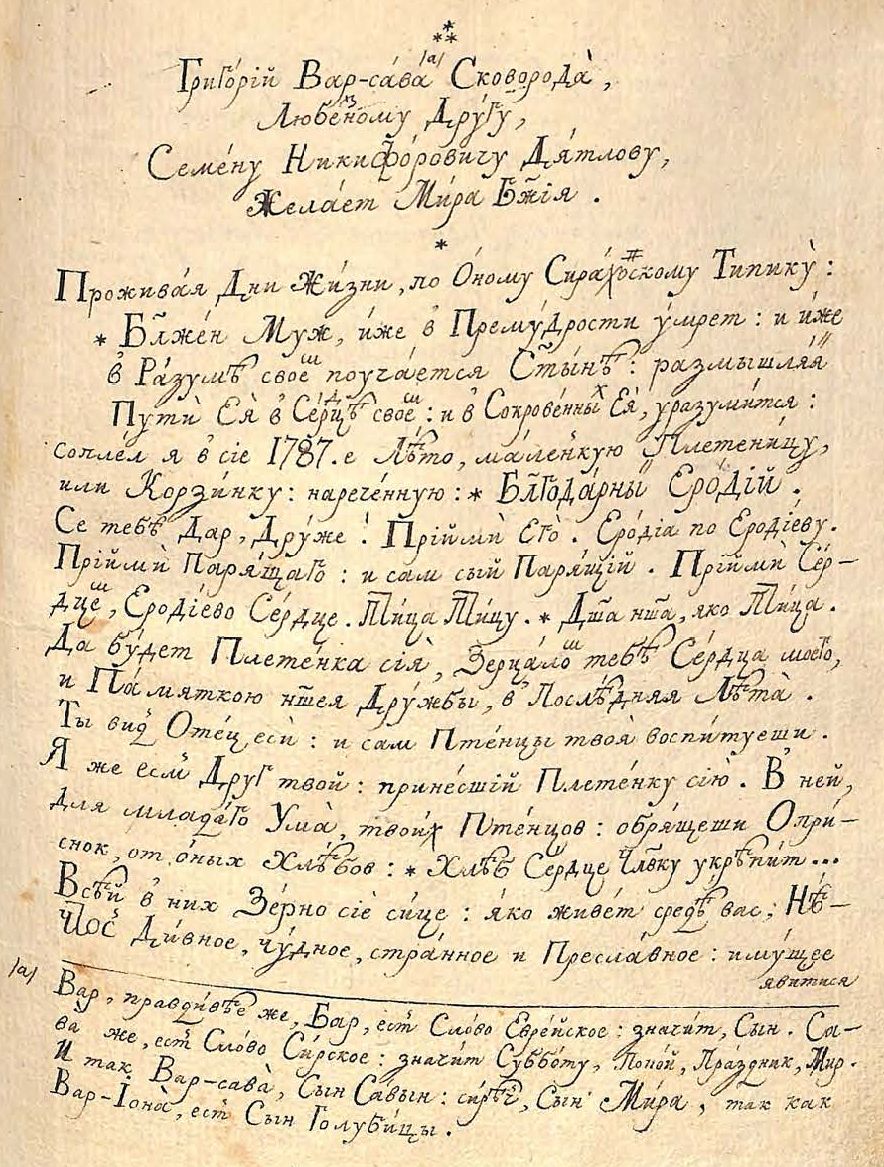 Григо́рій Вар-са́ва /а/ Сковорода̀,
Любе́зному Дру́гу,
Семе́ну Никифо́ровичу Дя́тлову,
Жела́ет Ми́ра Бж҃ія.
*
Прожива́я Дни Жи́зни, по О́ному Сира́хъскому Типику̀:
* Бл҃же́н Муж, и́же в Прему́дрости у́мрет: и и́же
в Ра́зумѣ свое́м поуча́ется Ст҃ы́нѣ: размышля́яй
Путѝ Ея̀ в Се́рдцѣ свое́м: и в Сокрове́нных Ея̀, уразуми́тся:
соплёл я в сіе 1787.е Лѣ́то, ма́ленкую Плетени́цу,
или Корзи́нку: нарече́нную: * Бл҃года́рный Еро́дій.
Се тебѣ Дар, Дру́же! Пріймѝ Его̀. Еро́діа по Еродіеву.
Пріймѝ Паря́щаго: и сам сый Паря́щій. Пріймѝ Се́р-
дцем, Еродіево Се́рдце. Пти́ца Пти́цу. * Дш҃а нш҃а, яко Пти́ца.
Да бу́дет Плете́нка сія̀, Зерца́лом тебѣ Се́рдца моего̀,
и Па́мяткою нш҃ея Дру́жбы, в Послѣ́дняя Лѣ́та̀.
Ты бо Оте́ц есѝ: и сам Птенцы твоя̀ воспи́туеши.
Я же есмь Друг твой: прине́сшій Плете́нку сію̀. В ней,
для млада́го Ума̀, твои́х Птенцо́в: обря́щеши Опрѣ-
снок, от о́ных Хлѣ́бов: * Хлѣб Се́рдце Чл҃вку укрѣпи́т...
Всѣ́й в них Зерно сіѐ си́це: я́ко живе́т средѣ̀ вас; Нѣ-
Что̀ Ди́вное, чу́дное, стра́нное и Пресла́вное: иму́щее
явитися
/а/ Вар, правди́вѣе же, Бар, есть Сло́во Евре́йское: значи́т, Сын. Са-
ва̀ же, есть Сло́во Си́рское: значи́т Суббо́ту, Поко́й, Пра́здник, Мир.
И так Вар-сава̀, Сын Са́вын: си́рѣчь, Сын Ми́ра, так как
Вар-Іона̀, есть Сын Голуби́цы.